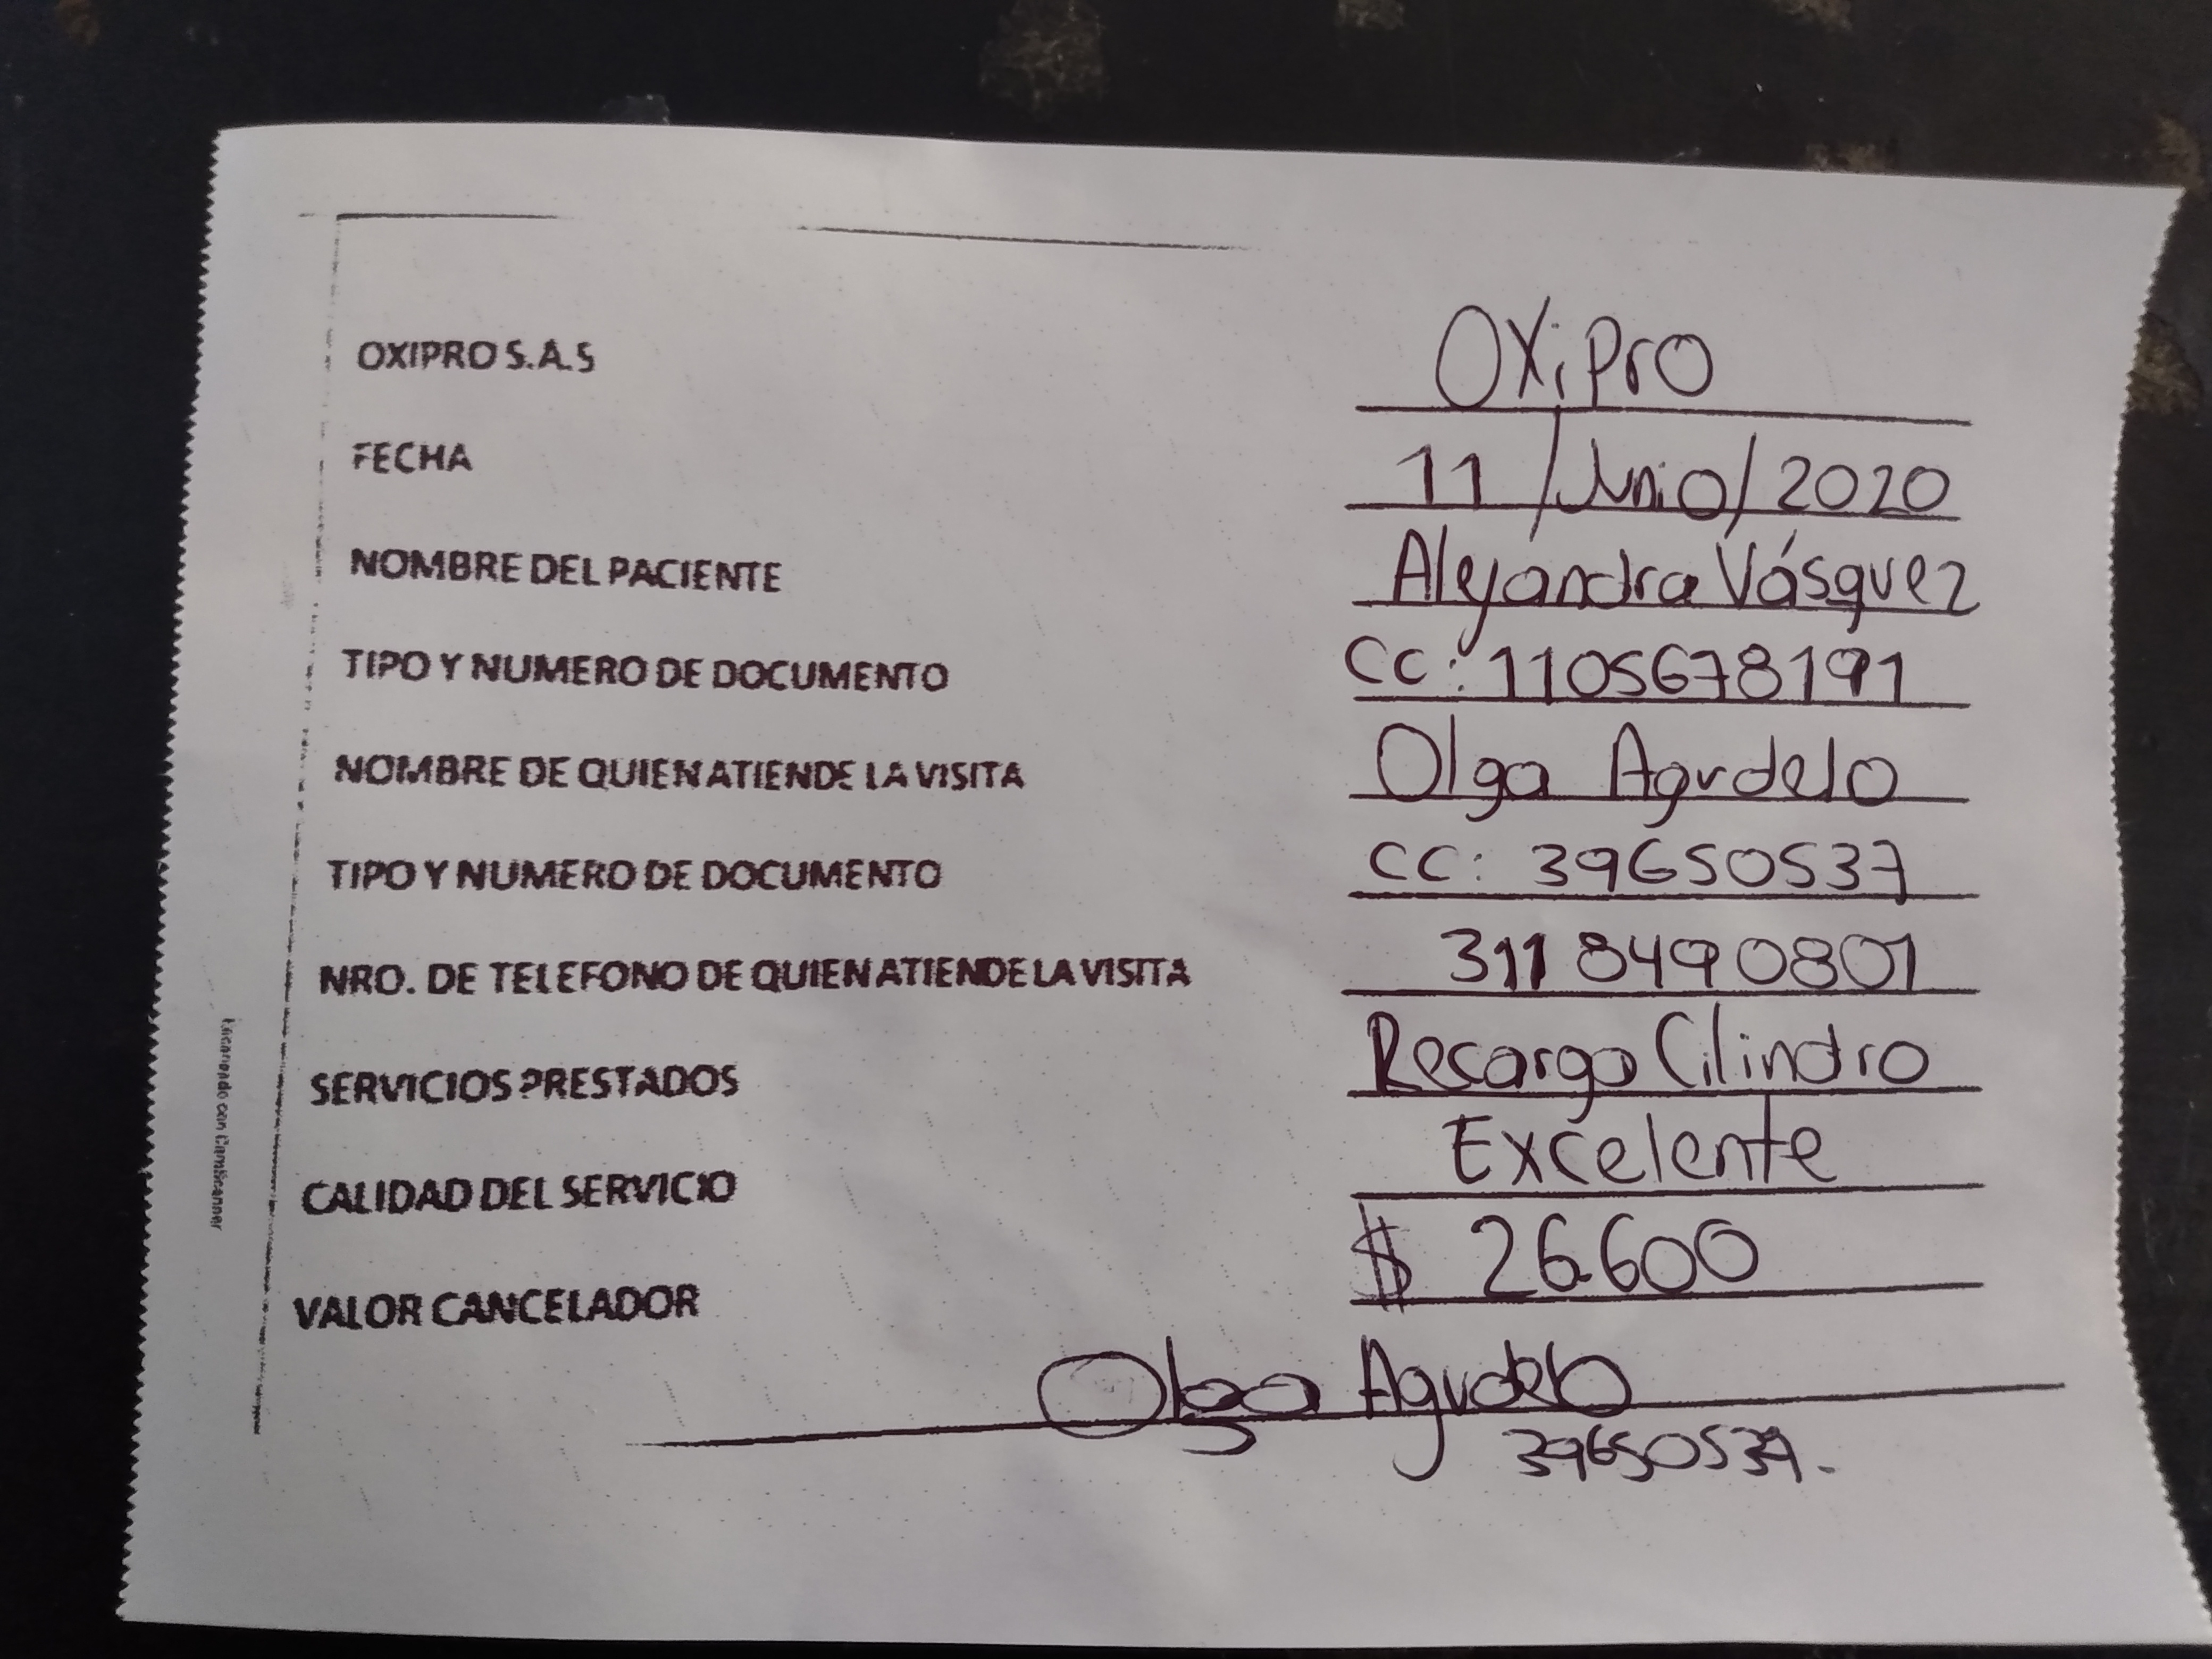 OXIPRO S.A.S OXiPro
FECHA 11/Junio/2020
NOMBRE DEL PACIENTE Alejandra Vásquez
TIPO Y NUMERO DE DOCUMENTO CC: 1105678191
NOMBRE DE QUIEN ATIENDE LA VISITA Olga Agudelo
TIPO Y NUMERO DE DOCUMENTO CC: 39650537
NRO. DE TELEFONO DE QUIEN ATIENDE LA VISITA 311 8490801
SERVICIOS PRESTADOS Recarga Cilindro
CALIDAD DEL SERVICIO Excelente
VALOR CANCELADOR $ 26.600
Olga Agudelo
39650537.
Escaneado con CamScanner